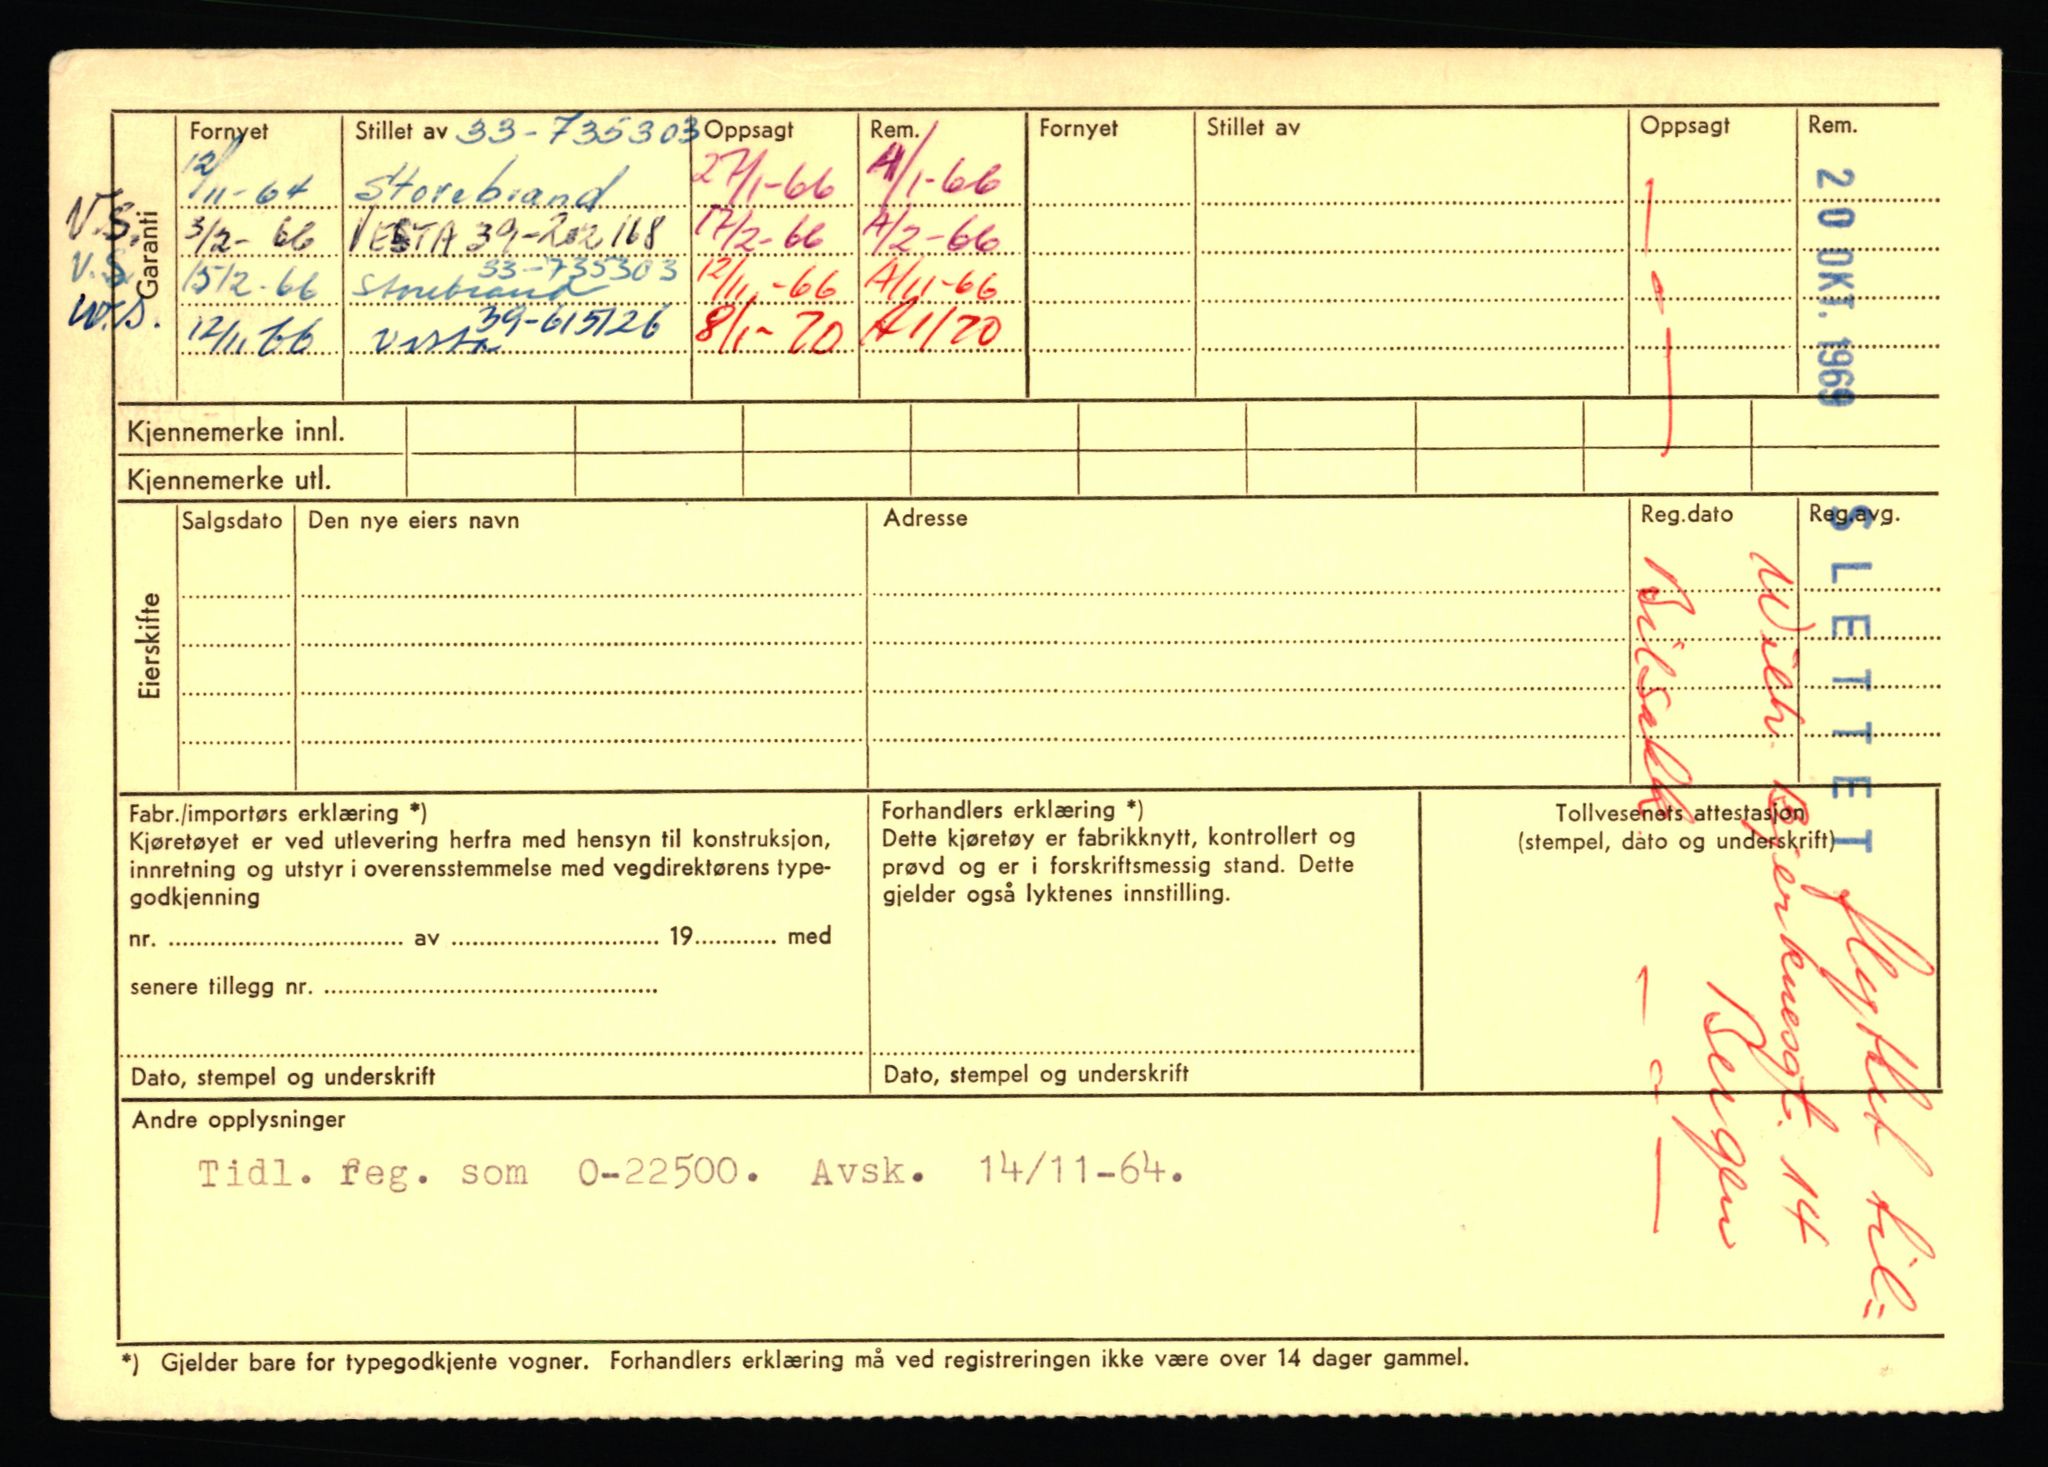 Garanti
Fornyet Stillet av 33-735303 Oppsagt Rem. Fornyet Stillet av Oppsagt Rem.
12/11-64 Storebrand 27/1-66 A/1-66
V.S. 3/2-66 VESTA 39-202168 17/2-66 A/2-66
V.S. 15/2-66 Storebrand 33-735303 12/11-66 A/11-66
W.S. 12/11 66 Vesta 39-615126 8/1-70 A 1/70
Kjennemerke innl.
Kjennemerke utl.
Eierskifte
Salgsdato Den nye eiers navn Adresse Reg.dato Reg.avg.
20 OKT. 1969
SLETTET
flyttet til=
Wilh. Bjerknesgt. 14
Bergen
Bilsakk.
Fabr./importørs erklæring *)
Kjøretøyet er ved utlevering herfra med hensyn til konstruksjon,
innretning og utstyr i overensstemmelse med vegdirektørens type-
godkjenning
nr. .................... av .................... 19............ med
senere tillegg nr. ....................
Dato, stempel og underskrift
Forhandlers erklæring *)
Dette kjøretøy er fabrikknytt, kontrollert og
prøvd og er i forskriftsmessig stand. Dette
gjelder også lyktenes innstilling.
Dato, stempel og underskrift
Tollvesenets attestasjon
(stempel, dato og underskrift)
Andre opplysninger
Tidl. reg. som O-22500. Avsk. 14/11-64.
*) Gjelder bare for typegodkjente vogner. Forhandlers erklæring må ved registreringen ikke være over 14 dager gammel.